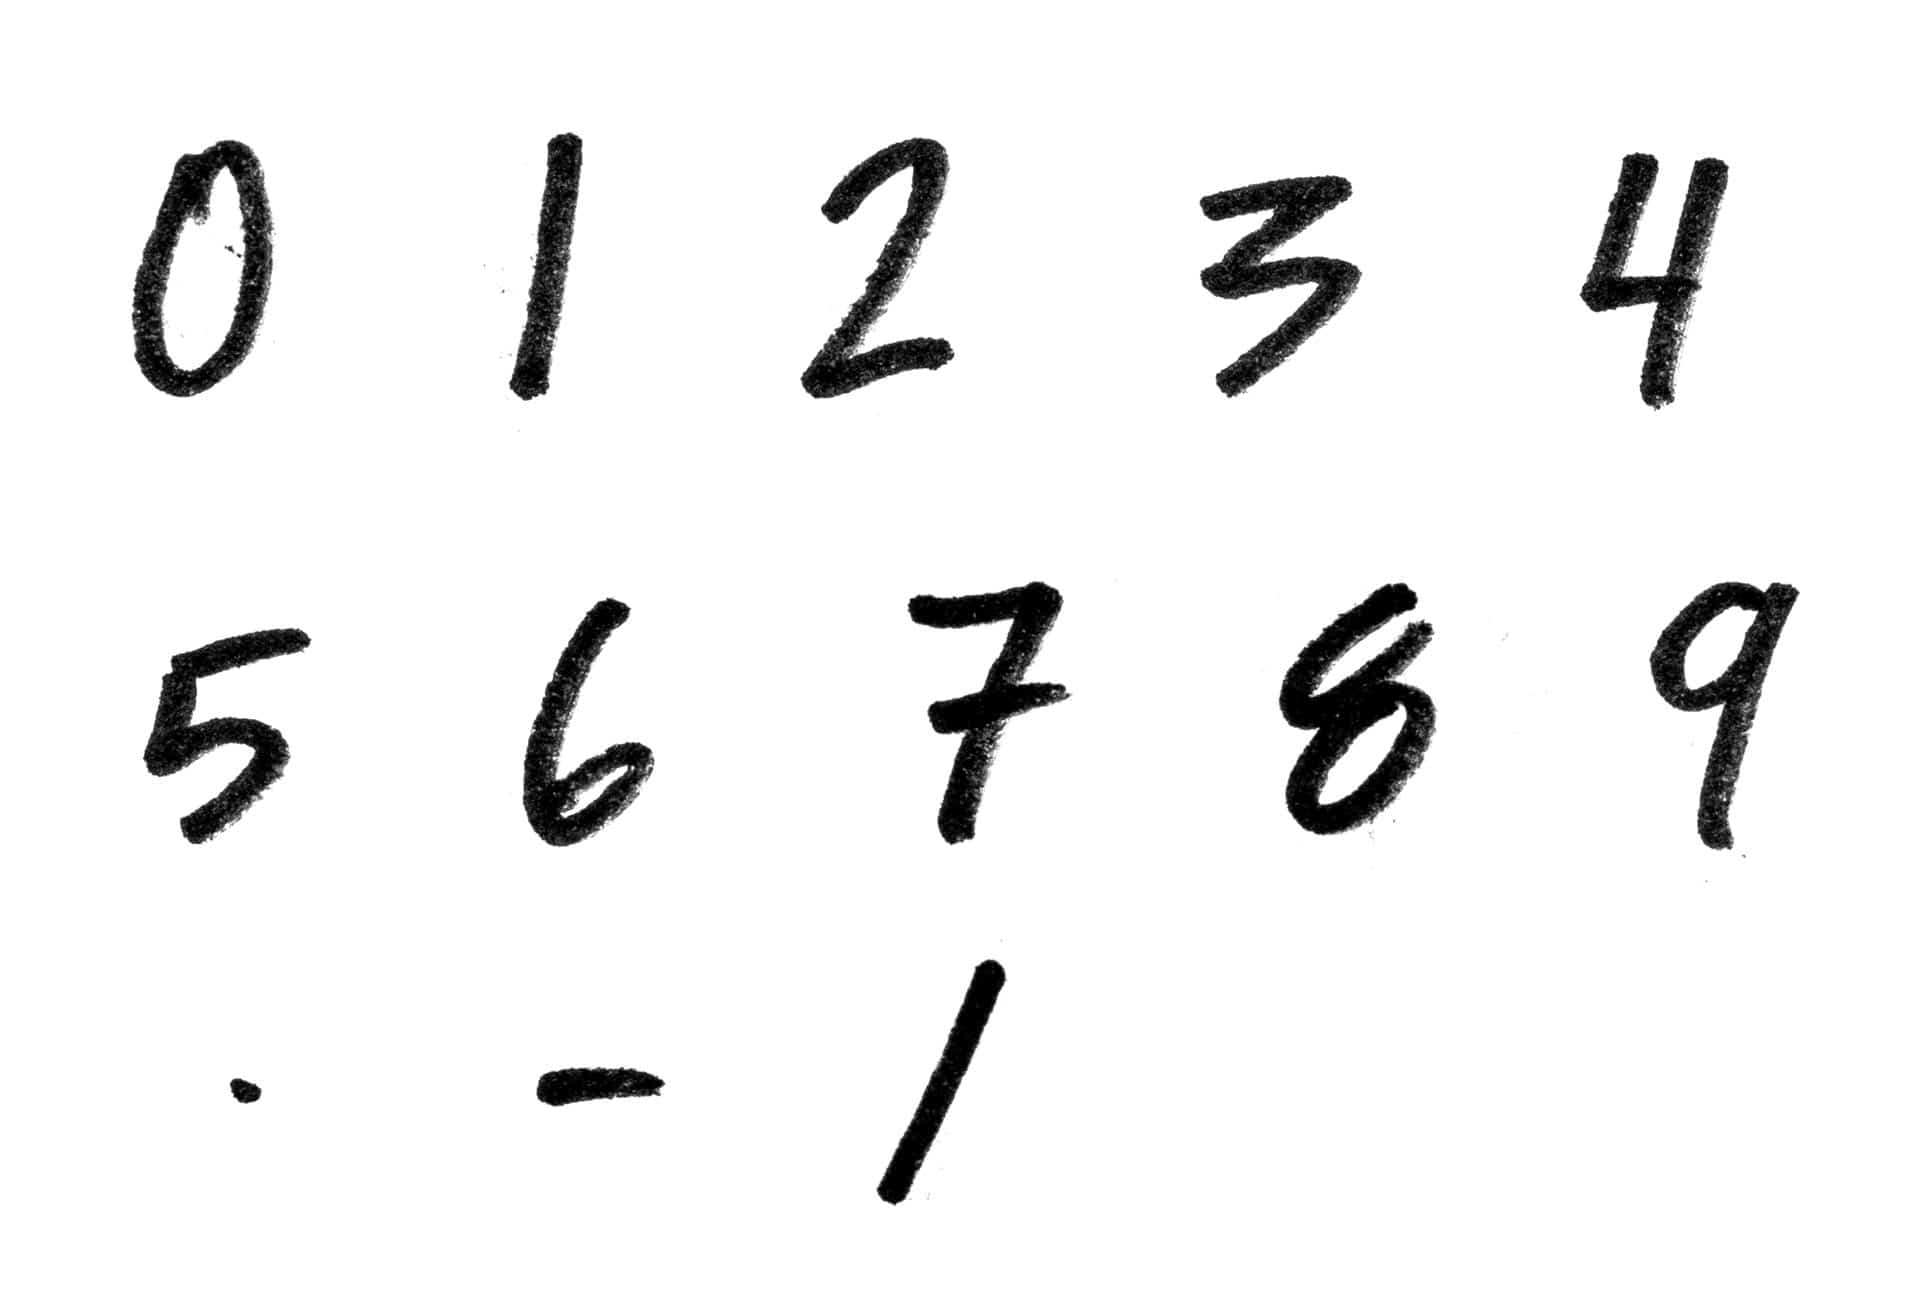 0 1 2 3 4
5 6 7 8 9
. - /